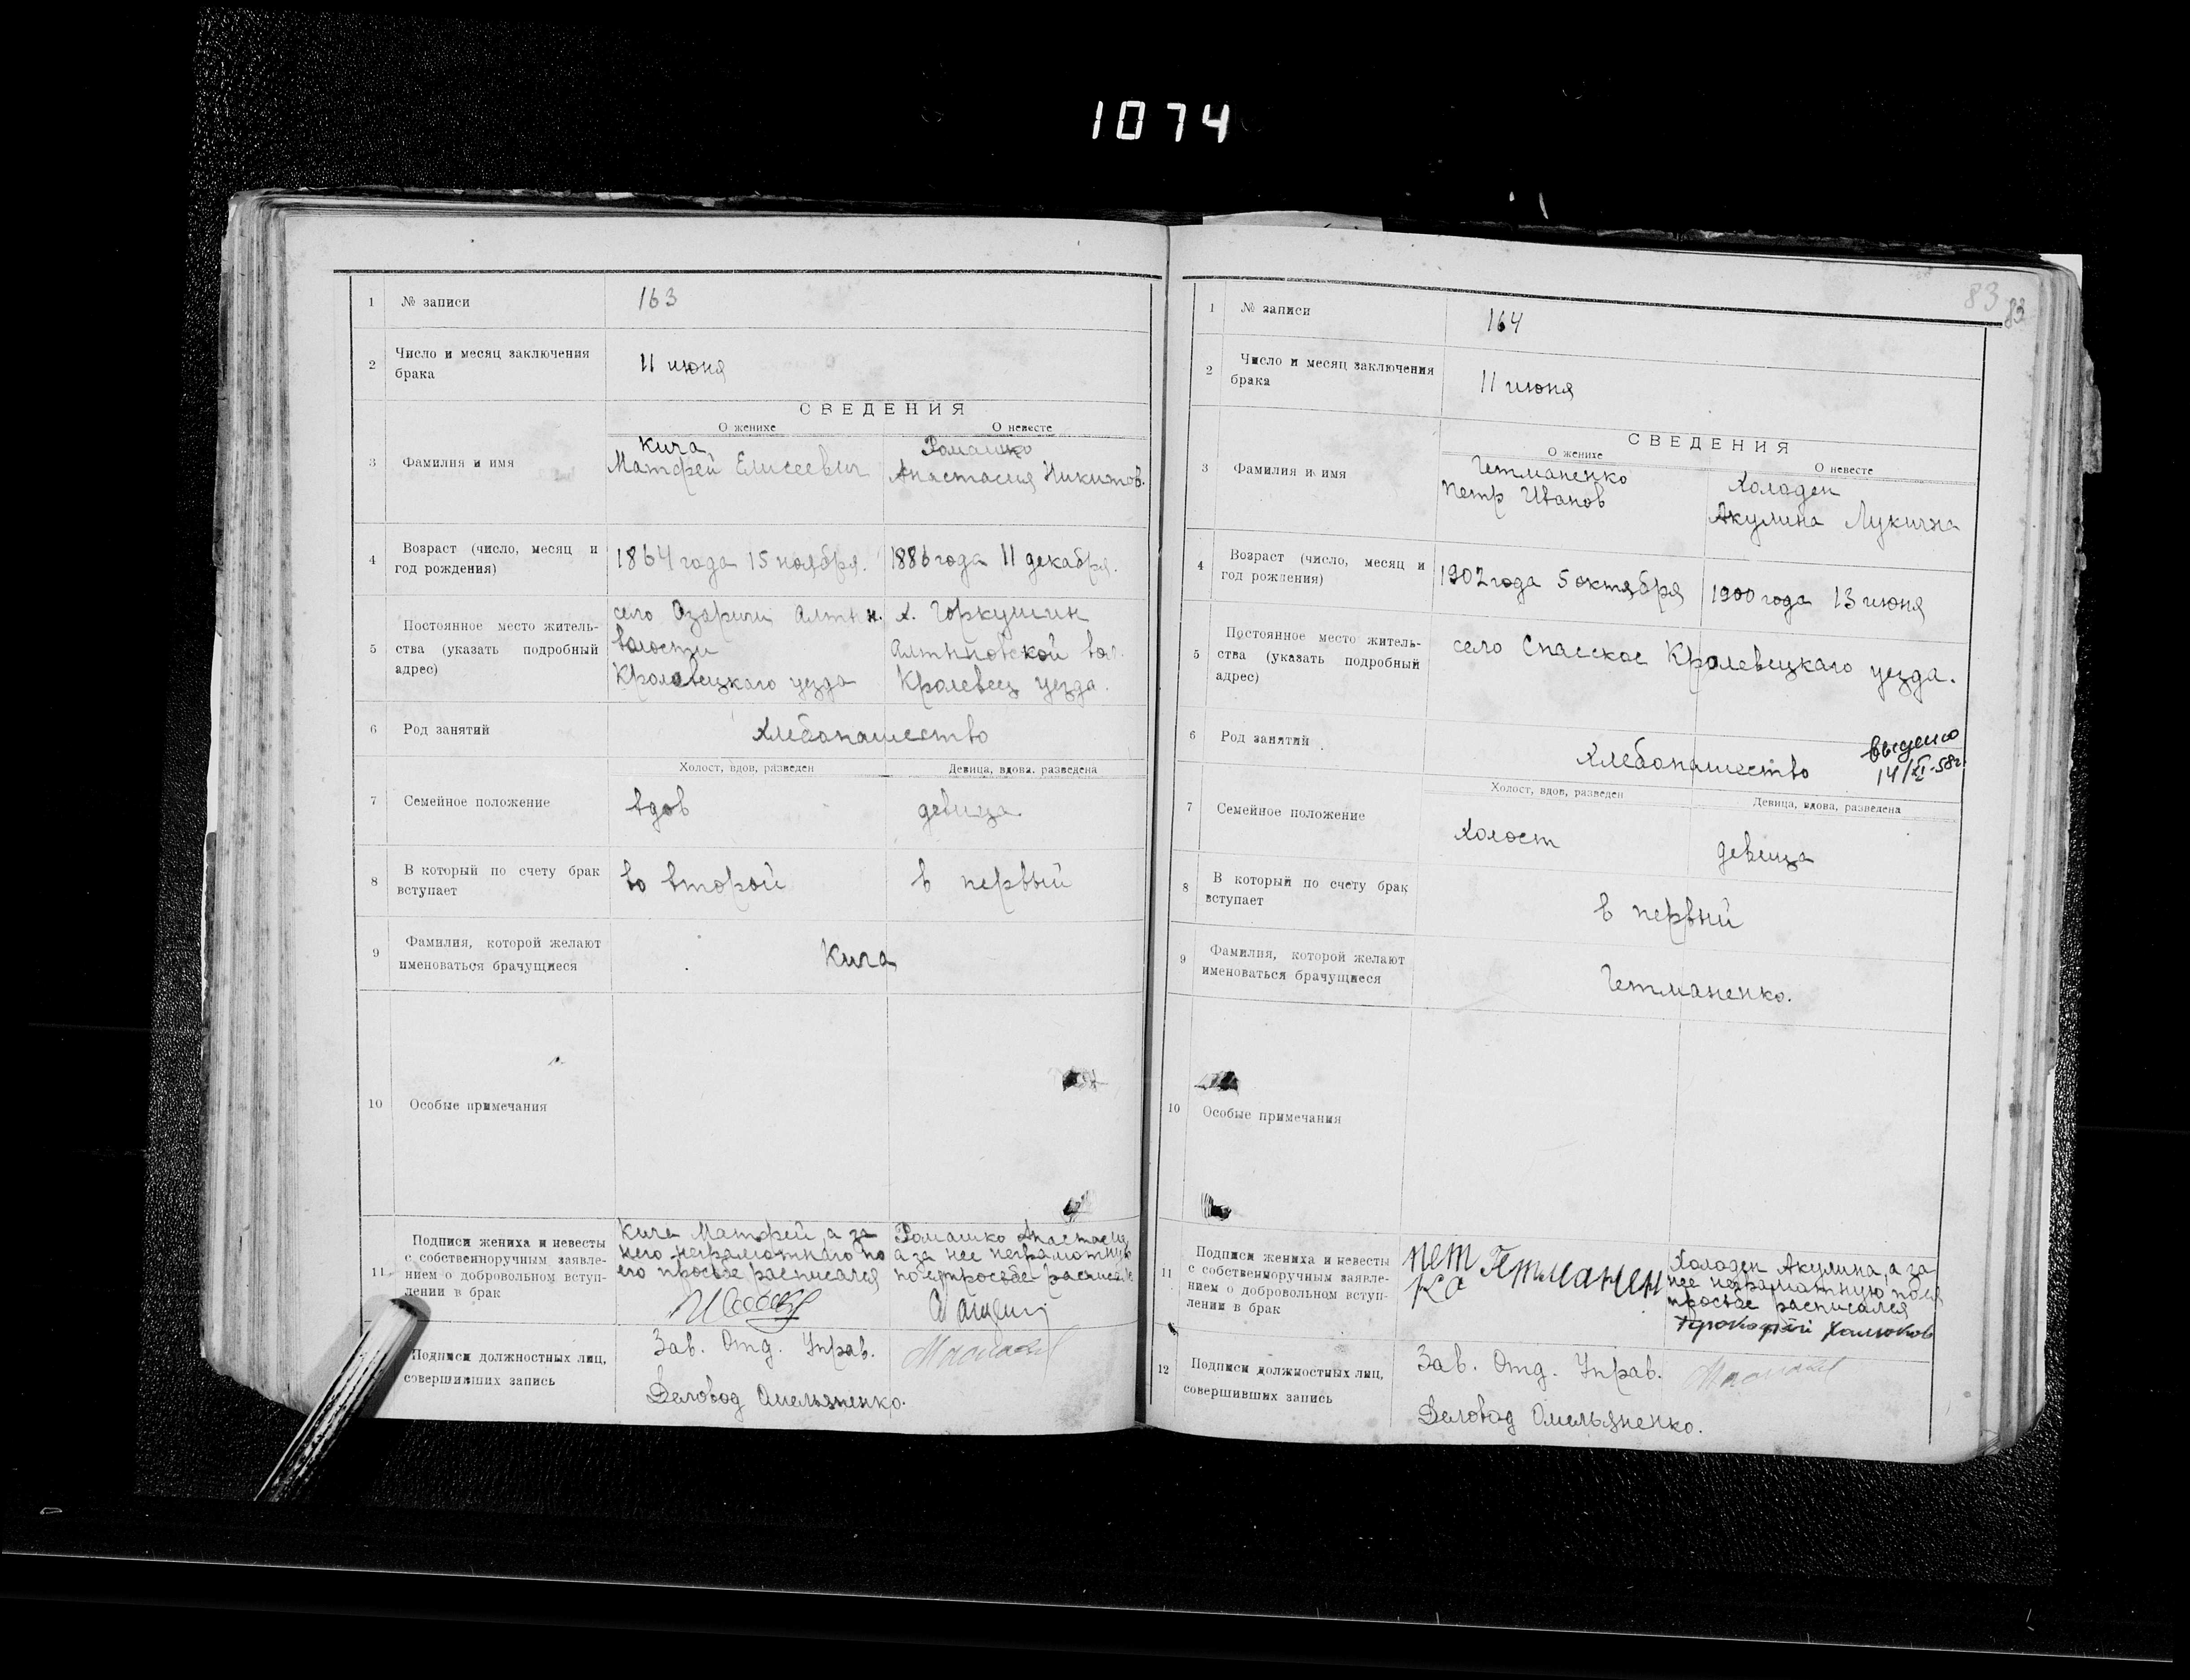 1074
1 № записи 163
2 Число и месяц заключения
брака
11 июня
СВЕДЕНИЯ
О женихе О невесте
3 Фамилия и имя
Кича
Матфей Елисеевич
Ромашко
Анастасия Никитов.
4 Возраст (число, месяц и
год рождения)
1864 года 15 ноября.
1886 года 11 декабря.
5 Постоянное место житель-
ства (указать подробный
адрес)
село Озаричи Алтын.
волости
Кролевецкаго уезда
х. Горкушин
Алтыновской вол.
Кролевец уезда.
6 Род занятий
Хлебопашество
Холост, вдов, разведен Девица, вдова, разведена
7 Семейное положение
вдов девица
8 В который по счету брак
вступает
во второй в первый
9 Фамилия, которой желают
именоваться брачущиеся
Кича
10 Особые примечания
11 Подписи жениха и невесты
с собственноручным заявле-
нием о добровольном вступ-
лении в брак
Кича Матфей, а за
него неграмотнаго по
его просьбе расписался
Ромашко Анастасия,
а за нее неграмотную
по ея просьбе
Подписи должностных лиц,
совершивших запись
Зав. Отд. Управ.
Деловод Омельяненко.
83 83
1 № записи 164
2 Число и месяц заключения
брака
11 июня
СВЕДЕНИЯ
О женихе О невесте
3 Фамилия и имя
Гетманенко
Петр Иванов
Холоден
Акулина Лукична
4 Возраст (число, месяц и
год рождения)
1902 года 5 октября
1900 года 13 июня
5 Постоянное место житель-
ства (указать подробный
адрес)
село Спасское Кролевецкаго уезда.
6 Род занятий
Хлебопашество
выдано
14/XI-58г.
Холост, вдов, разведен Девица, вдова, разведена
7 Семейное положение
Холост девица
8 В который по счету брак
вступает
в первый
9 Фамилия, которой желают
именоваться брачущиеся
Гетманенко.
10 Особые примечания
11 Подписи жениха и невесты
с собственноручным заявле-
нием о добровольном вступ-
лении в брак
пет Гетманен
ко
Холоден Акулина, а за
нее неграмотную по ея
просьбе расписался
Прокофий
12 Подписи должностных лиц,
совершивших запись
Зав. Отд. Управ.
Деловод Омельяненко.